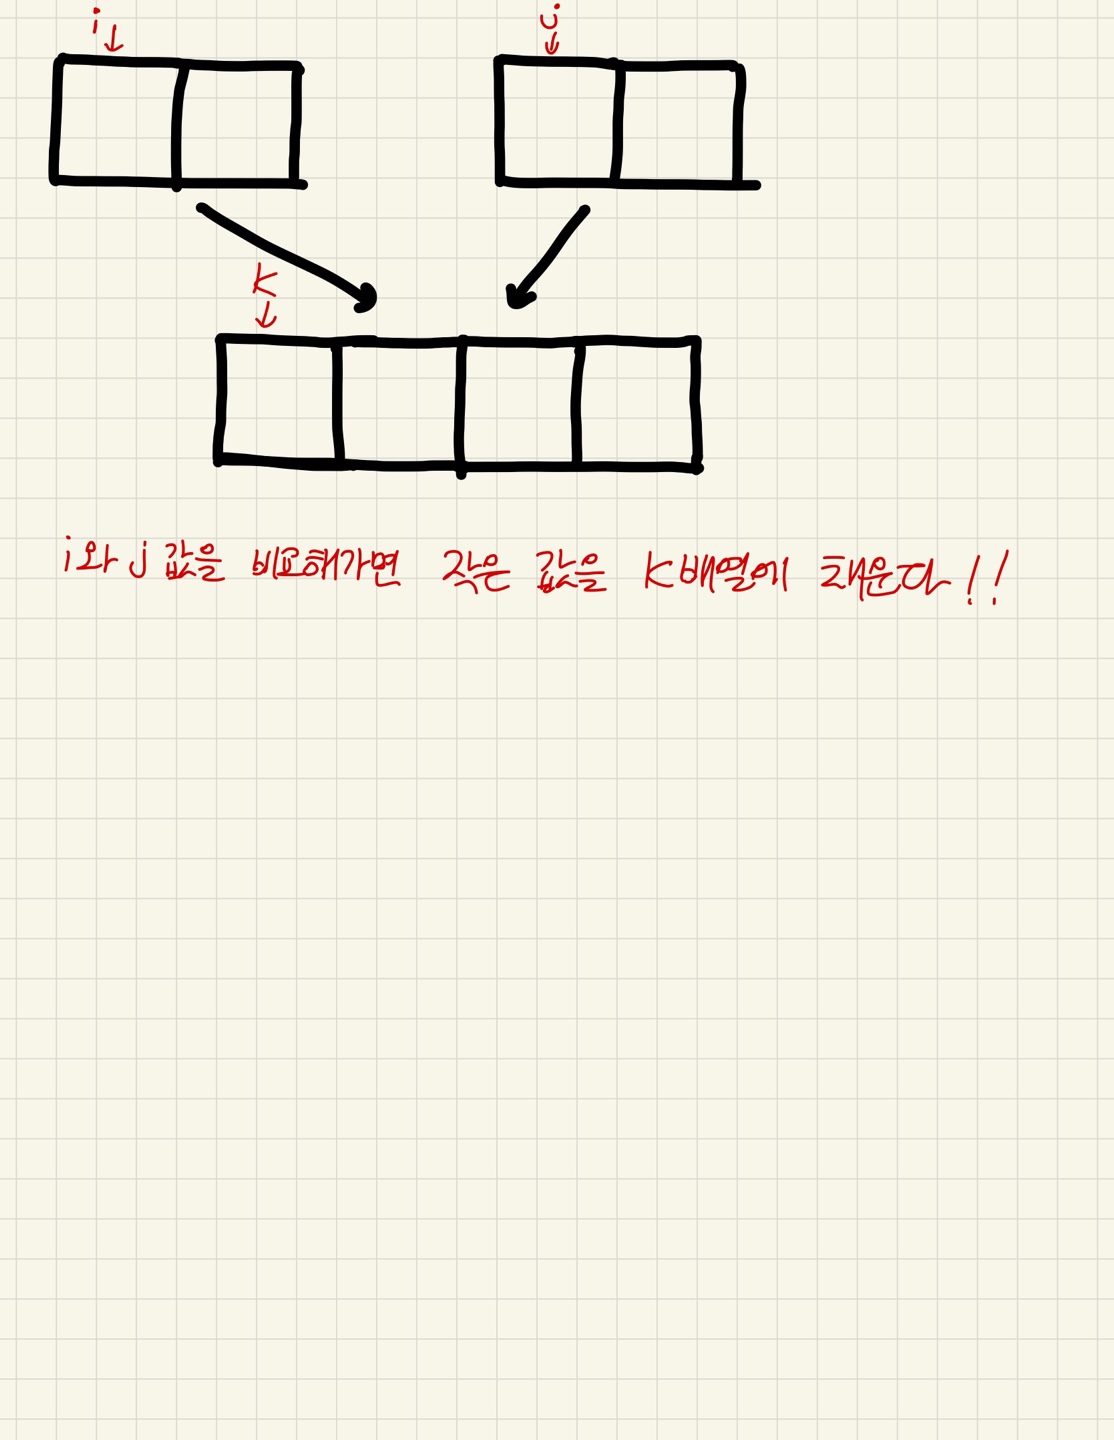 i
j
K
i와 j 값을 비교해가면 작은 값을 K배열에 채운다!!